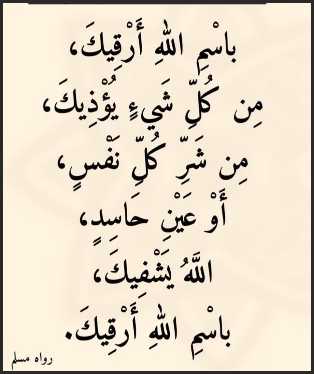 باسْمِ اللهِ أَرْقِيكَ،
مِن كُلِّ شَيءٍ يُؤْذِيكَ،
مِن شَرِّ كُلِّ نَفْسٍ،
أَوْ عَيْنِ حَاسِدٍ،
اللَّهُ يَشْفِيكَ،
باسْمِ اللهِ أَرْقِيكَ.
رواه مسلم